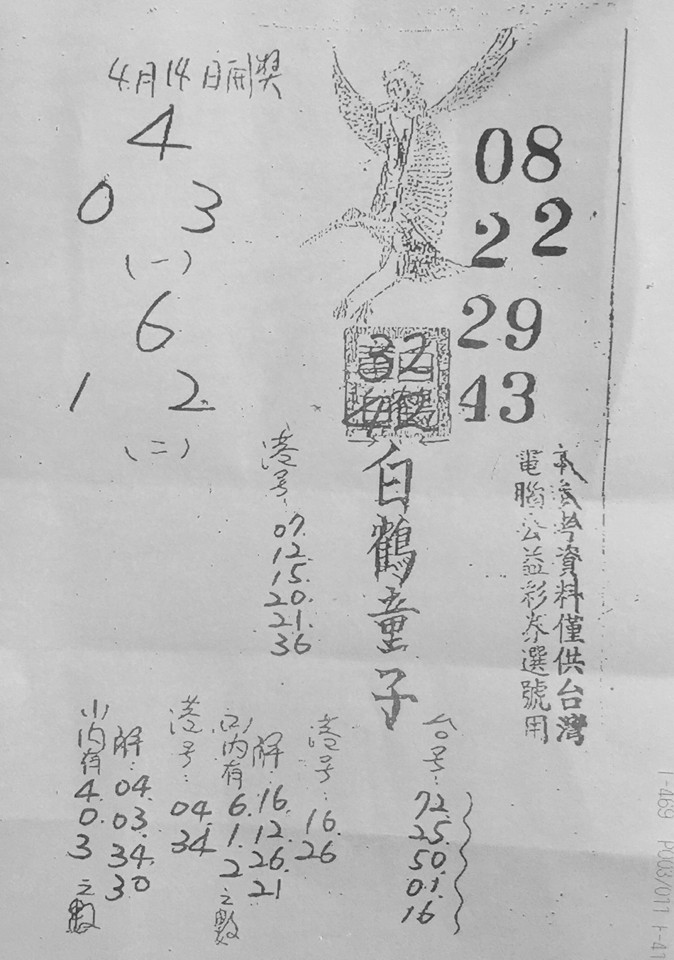 4月14日開獎
4
0 3
(一)
6
1 2
(二)
08
22
29
43
32
42
白鶴童子
參考資料僅供台灣
電腦公益彩券選號用
港号:
07.
12.
15.
20.
21.
36
台号:
72.
25.
50.
01.
16
港号:
16.
26
解:
16.
12.
26.
21
(2)內有
6.
1.
2
之數
港号:
04.
34
解:
04.
03.
34.
30
(1)內有
4.
0.
3
之數
1-469 P003/011